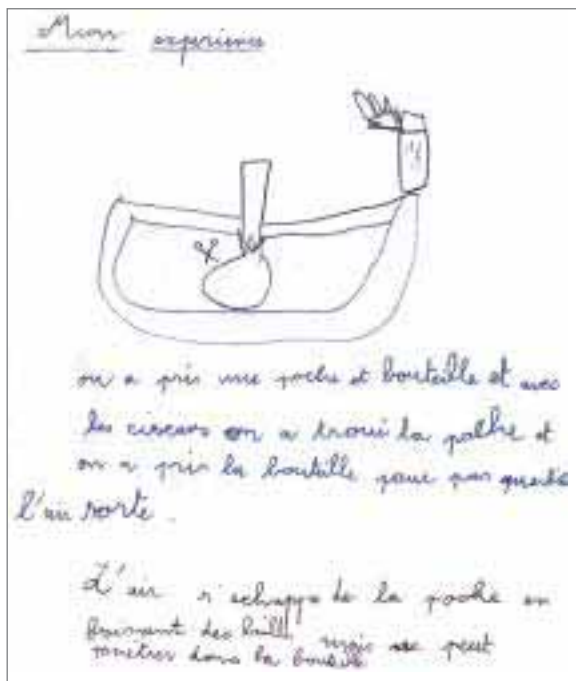 Mon expérience
on a pris une poche et bouteille et avec
les ciseaux on a troui la pohe et
on a pris la bouteille pour pas que
l'air sorte.
L'air s'échappe de la poche en
formant des bulle mais ne peut
dans la bouteille